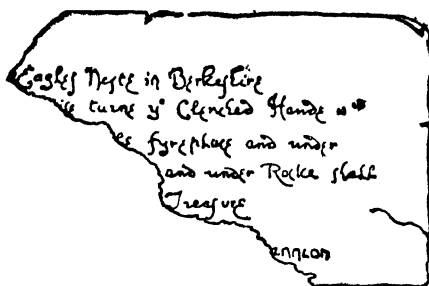 Eagles Neste in Berkeshire
turne yᵉ Clenched Hande
fyreplace and under
and under Rocke shall
Treasure